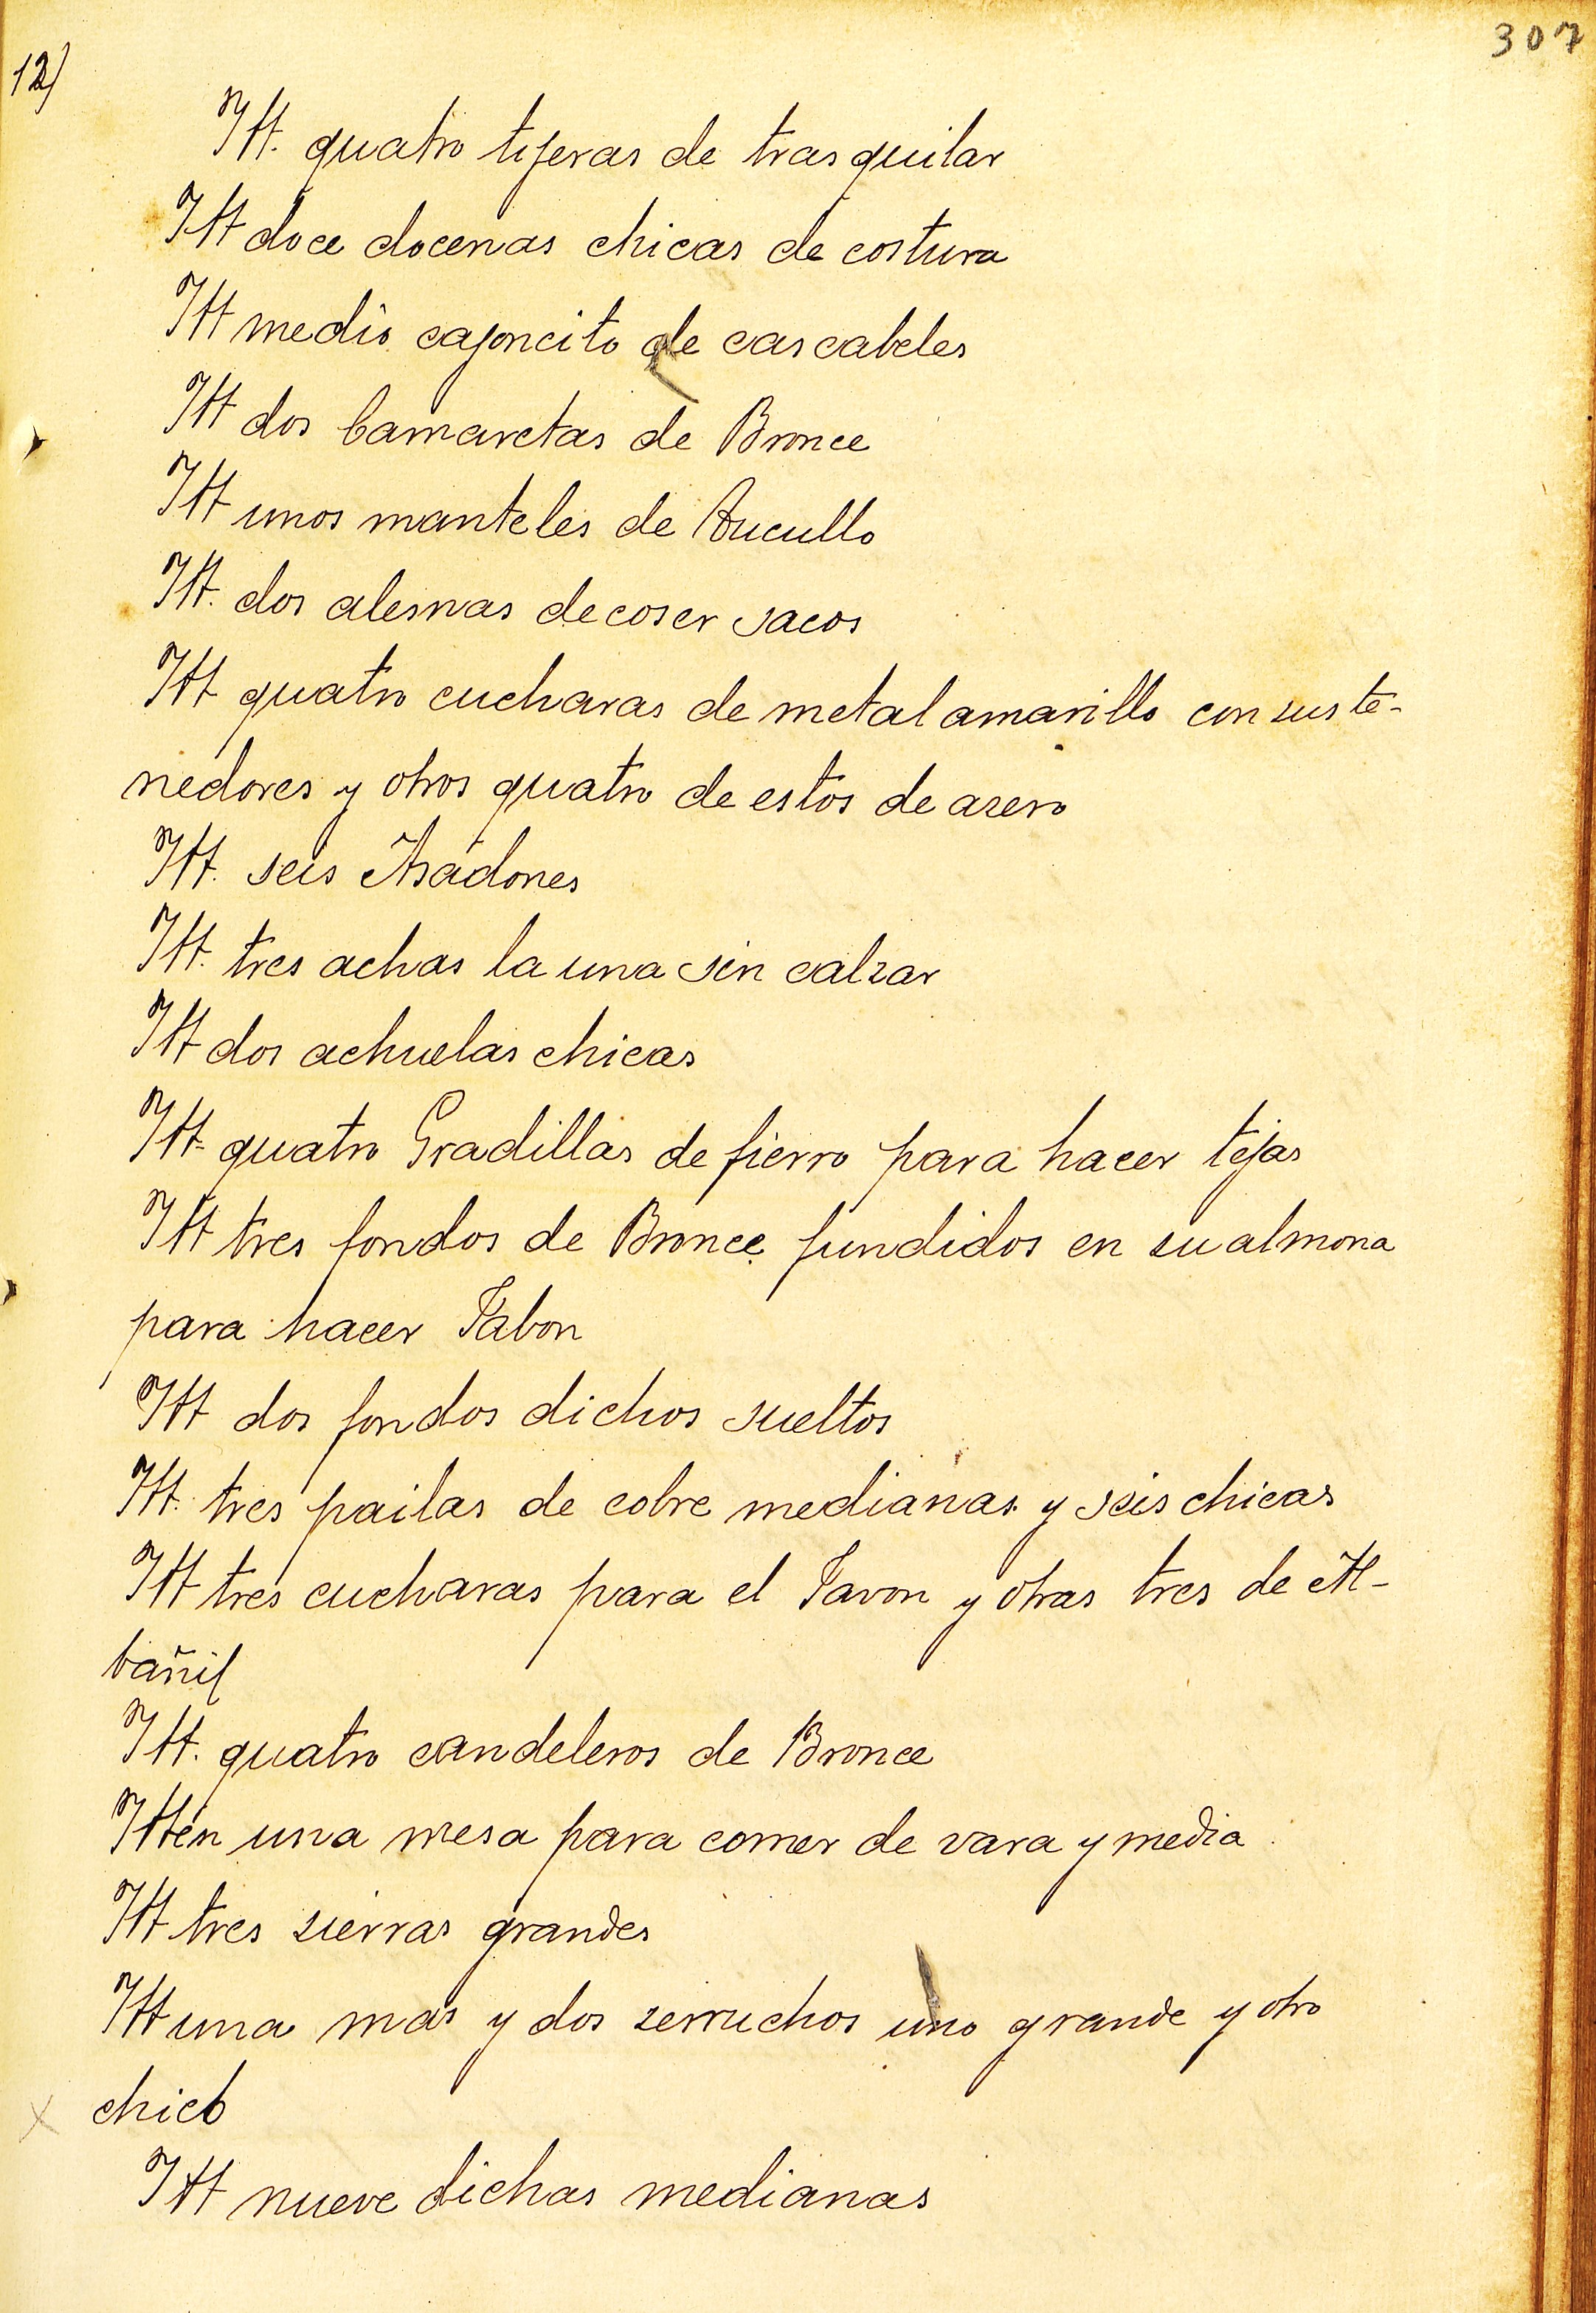 12)
307
Itt. quatro tijeras de trasquilar
Itt doce docenas chicas de costura
Itt medio cajoncito de cascabeles
Itt dos Camaretas de Bronce
Itt unos manteles de Aucullo
Itt. dos alesnas de coser sacos
Itt quatro cucharas de metal amarillo con sus te-
nedores y otros quatro de estos de azero
Itt. seis Asadones
Itt. tres achas la una sin calzar
Itt dos achuelas chicas
Itt quatro Gradillas de fierro para hacer tejas
Itt tres fondos de Bronce fundidos en su almona
para hacer Jabon
Itt dos fondos dichos sueltos
Itt. tres pailas de cobre medianas y seis chicas
Itt tres cucharas para el Javon y otras tres de Al-
bañil
Itt. quatro candeleros de Bronce
Itten una mesa para comer de vara y media
Itt tres sierras grandes
Itt una mas y dos serruchos uno grande y otro
chico
Itt nueve dichas medianas